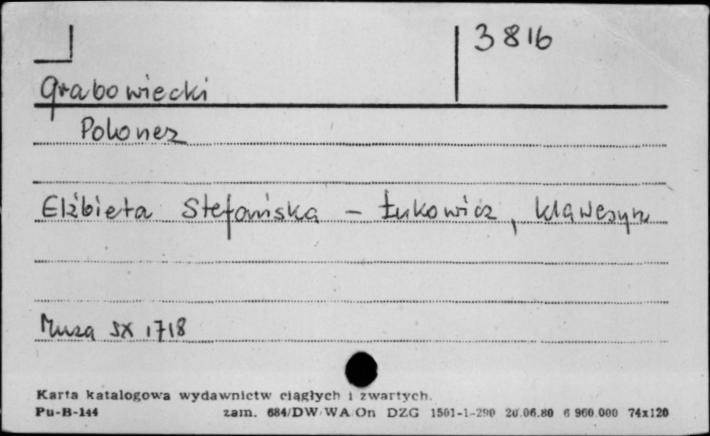 3816
Grabowiecki
Polonez
Elżbieta Stefańska - Łukowicz, klawesyn
Muza SX 1718
Karta katalogowa wydawnictw ciągłych i zwartych.
Pu-B-144 zam. 684/DW/WA/On DZG 1501-1-290 20.06.80 6 960.000 74x120